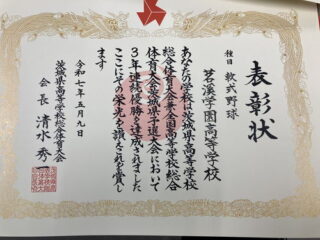 表彰状
種目 軟式野球
茗溪学園高等学校
あなたの学校は茨城県高等学校
総合体育大会兼全国高等学校総合
体育大会茨城県予選大会において
3年連続優勝を達成されました
ここにその栄光を讃えこれを賞し
ます
令和七年五月九日
茨城県高等学校総合体育大会
会長 清水秀一